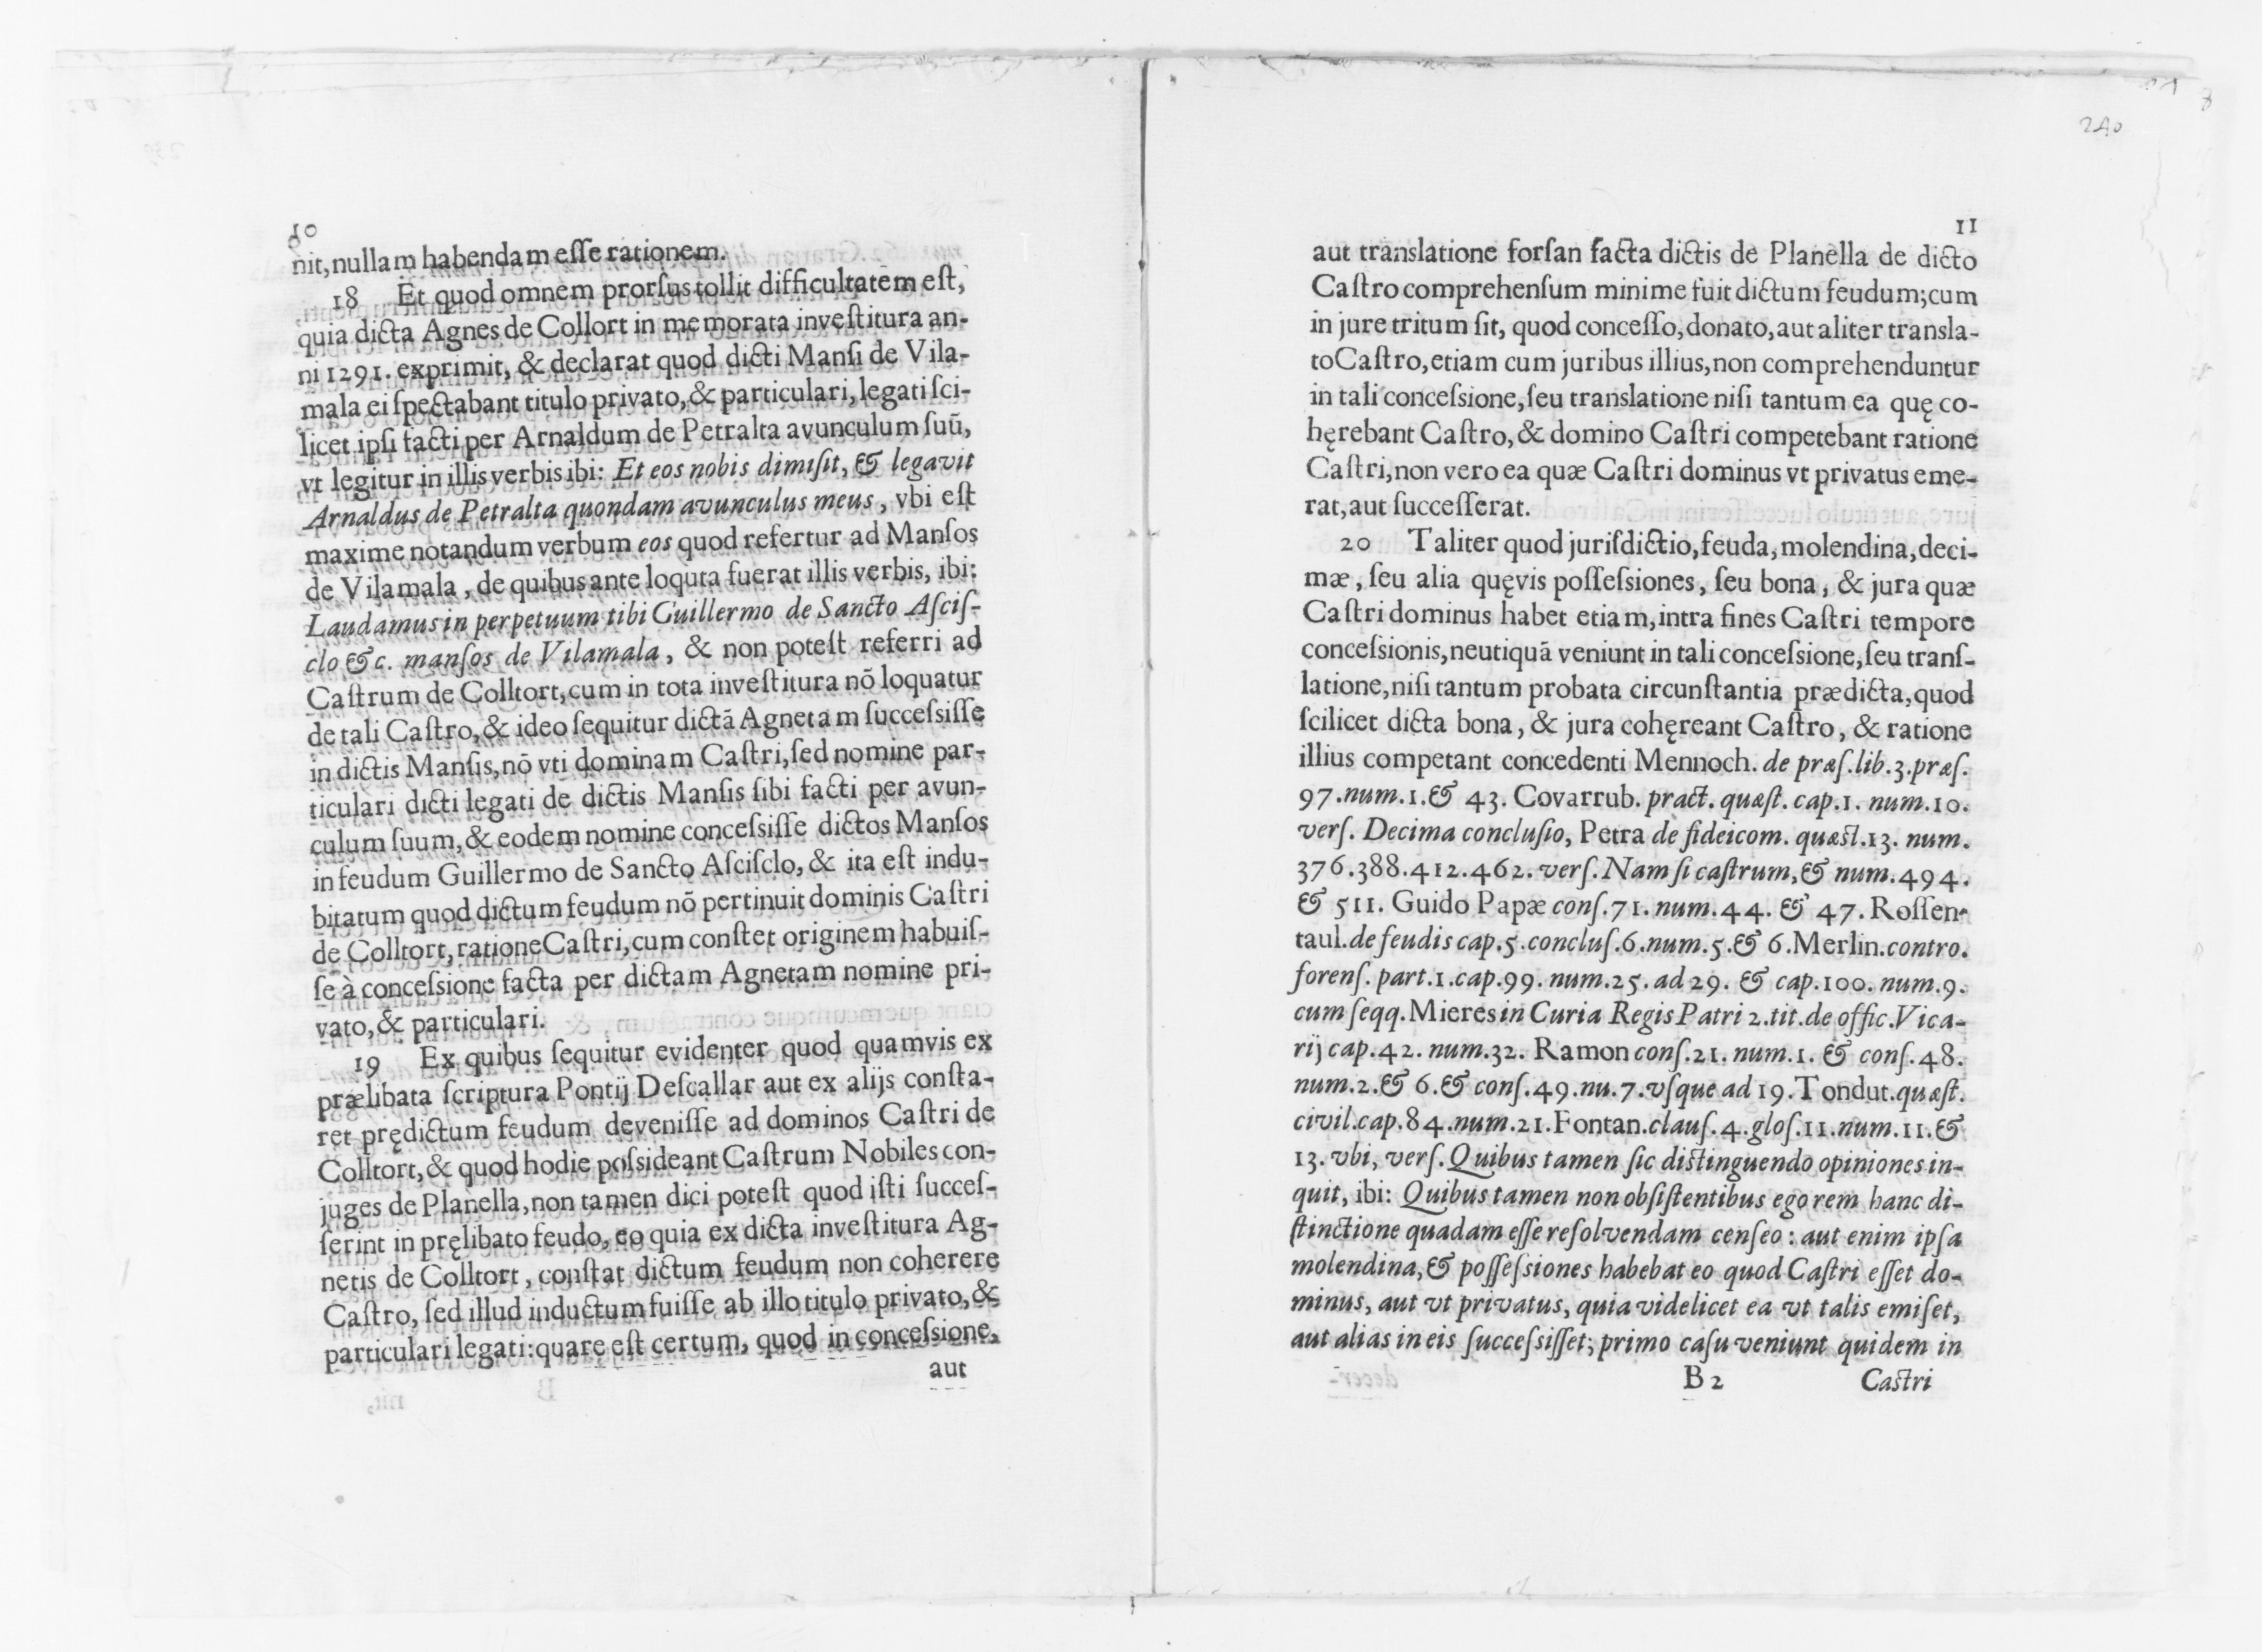 10
nit, nullam habendam eſſe rationem.
18 Et quod omnem prorſus tollit difficultatem eſt,
quia dicta Agnes de Collort in memorata inveſtitura an-
ni 1291. exprimit, & declarat quod dicti Manſi de Vila-
mala ei ſpectabant titulo privato, & particulari, legati ſci-
licet ipſi facti per Arnaldum de Petralta avunculum ſuũ,
vt legitur in illis verbis ibi: Et eos nobis dimiſit, & legavit
Arnaldus de Petralta quondam avunculus meus, vbi eſt
maxime notandum verbum eos quod refertur ad Manſos
de Vilamala, de quibus ante loquta fuerat illis verbis, ibi:
Laudamus in perpetuum tibi Guillermo de Sancto Aſciſ-
clo &c. manſos de Vilamala, & non poteſt referri ad
Caſtrum de Colltort, cum in tota inveſtitura nõ loquatur
de tali Caſtro, & ideo ſequitur dictã Agnetam ſucceſsiſſe
in dictis Manſis, nõ vti dominam Caſtri, ſed nomine par-
ticulari dicti legati de dictis Manſis ſibi facti per avun-
culum ſuum, & eodem nomine conceſsiſſe dictos Manſos
in feudum Guillermo de Sancto Aſciſclo, & ita eſt indu-
bitatum quod dictum feudum nõ pertinuit dominis Caſtri
de Colltort, ratione Caſtri, cum conſtet originem habuiſ-
ſe à conceſsione facta per dictam Agnetam nomine pri-
vato, & particulari.
19 Ex quibus ſequitur evidenter quod quamvis ex
prælibata ſcriptura Pontij Deſcallar aut ex alijs conſta-
ret prędictum feudum deveniſſe ad dominos Caſtri de
Colltort, & quod hodie poſsideant Caſtrum Nobiles con-
juges de Planella, non tamen dici poteſt quod iſti ſucceſ-
ſerint in pręlibato feudo, eo quia ex dicta inveſtitura Ag-
netis de Colltort, conſtat dictum feudum non coherere
Caſtro, ſed illud inductum fuiſſe ab illo titulo privato, &
particulari legati: quare eſt certum, quod in conceſsione,
aut
240
11
aut translatione forſan facta dictis de Planella de dicto
Caſtro comprehenſum minime fuit dictum feudum; cum
in jure tritum ſit, quod conceſſo, donato, aut aliter transla-
to Caſtro, etiam cum juribus illius, non comprehenduntur
in tali conceſsione, ſeu translatione niſi tantum ea quę co-
hęrebant Caſtro, & domino Caſtri competebant ratione
Caſtri, non vero ea quæ Caſtri dominus vt privatus eme-
rat, aut ſucceſſerat.
20 Taliter quod juriſdictio, feuda, molendina, deci-
mæ, ſeu alia quęvis poſſeſsiones, ſeu bona, & jura quæ
Caſtri dominus habet etiam, intra fines Caſtri tempore
conceſsionis, neutiquã veniunt in tali conceſsione, ſeu tranſ-
latione, niſi tantum probata circunſtantia prædicta, quod
ſcilicet dicta bona, & jura cohęreant Caſtro, & ratione
illius competant concedenti Mennoch. de præſ. lib. 3. præſ.
97. num. 1. & 43. Covarrub. pract. quæſt. cap. 1. num. 10.
verſ. Decima concluſio, Petra de fideicom. quæſt. 13. num.
376. 388. 412. 462. verſ. Nam ſi caſtrum, & num. 494.
& 511. Guido Papæ conſ. 71. num. 44. & 47. Roſſen-
taul. de feudis cap. 5. concluſ. 6. num. 5. & 6. Merlin. contro.
forenſ. part. 1. cap. 99. num. 25. ad 29. & cap. 100. num. 9.
cum ſeqq. Mieres in Curia Regis Patri 2. tit. de offic. Vica-
rij cap. 42. num. 32. Ramon conſ. 21. num. 1. & conſ. 48.
num. 2. & 6. & conſ. 49. nu. 7. vſque ad 19. Tondut. quæſt.
civil. cap. 84. num. 21. Fontan. clauſ. 4. gloſ. 11. num. 11. &
13. vbi, verſ. Quibus tamen ſic diſtinguendo opiniones in-
quit, ibi: Quibus tamen non obſiſtentibus ego rem hanc di-
ſtinctione quadam eſſe reſolvendam cenſeo: aut enim ipſa
molendina, & poſſeſsiones habebat eo quod Caſtri eſſet do-
minus, aut vt privatus, quia videlicet ea vt talis emiſet,
aut alias in eis ſucceſsiſſet; primo caſu veniunt quidem in
B 2 Caſtri